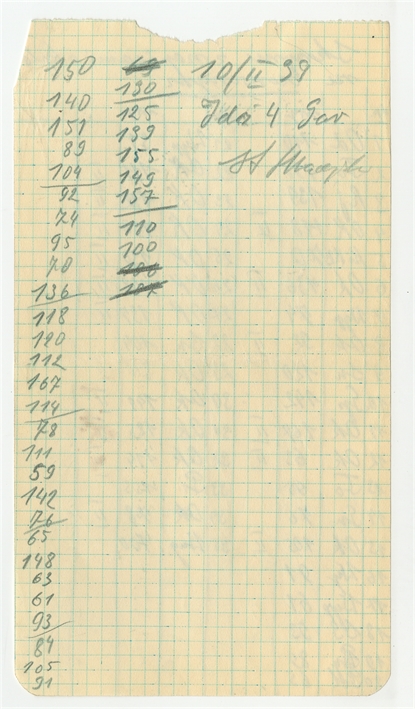 150
140
151
89
104
92
74
95
70
136
118
120
112
167
114
78
111
59
142
76
65
148
63
61
93
84
105
91
69
130
125
139
155
149
157
110
100
10/II 39
4